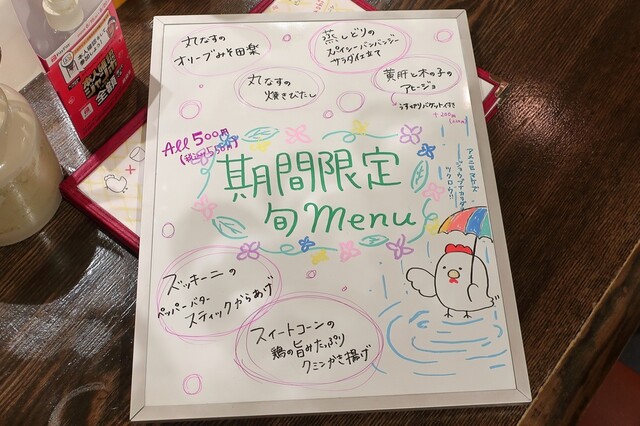 丸なすの
オリーブみそ田楽
蒸しどりの
スパイシーバンバンジー
サラダ仕立て
丸なすの
焼きびたし
黄肝と木の子の
アヒージョ
うすっパリバゲット付き
+200円
All 500円
(税込み550円)
期間限定
旬Menu
アメニモマケズ
ジョウブナカラダ
ツクロウ!!
ズッキーニの
ペッパーバター
スティックからあげ
スイートコーンの
鶏の旨みたっぷり
クミンかき揚げ